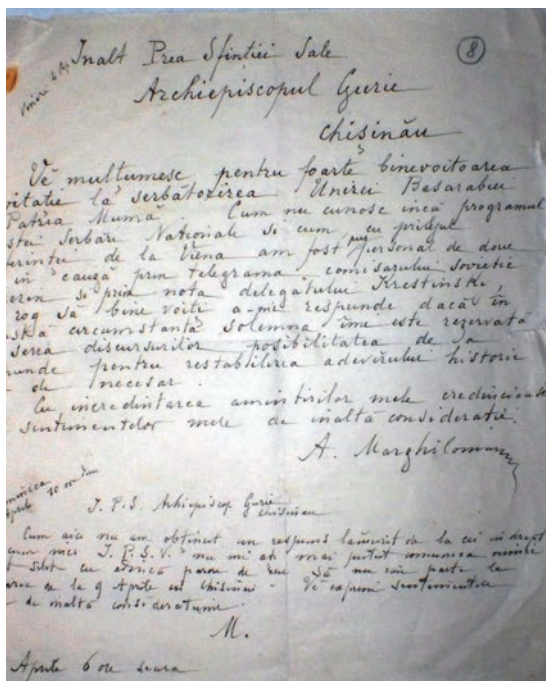 8
Inalt Prea Sfinției Sale
Archiepiscopul Gurie
Chișinău
Vă multumesc pentru foarte binevoitoarea
vitatie la serbătorirea Unirei Basarabiei
Patria Mumă. Cum nu cunosc încă programul
stei Serbări Nationale si cum, cu prilejul
erintei de la Viena am fost pus personal de doue
in cauză prin telegrama comisarului sovietic
eren si prin nota delegatului Krestinski,
rog să bine voiti a-mi respunde dacă în
stă circumstanță solemnă îmi este rezervată
seria discursurilor posibilitatea de a
unde pentru restabilirea adevĕrului historic
de necesar.
Cu incredintarea amintirilor mele credincioase
sentimentelor mele de inaltă consideratie.
A. Marghiloman
I. P. S. Arhiepiscop Gurie
Chisinau
Cum aici nu am obtinut un respuns lămurit de la cei in drept
mes I.P.S.V. nu mi ati mai putut comunica nimic
silit cu adincă parere de reu să nu iau parte la
area de la 9 Aprilie in Chisinău. Vă exprim sentimentele
de inaltă consideratiune.
M.
Aprilie 6 ore seara